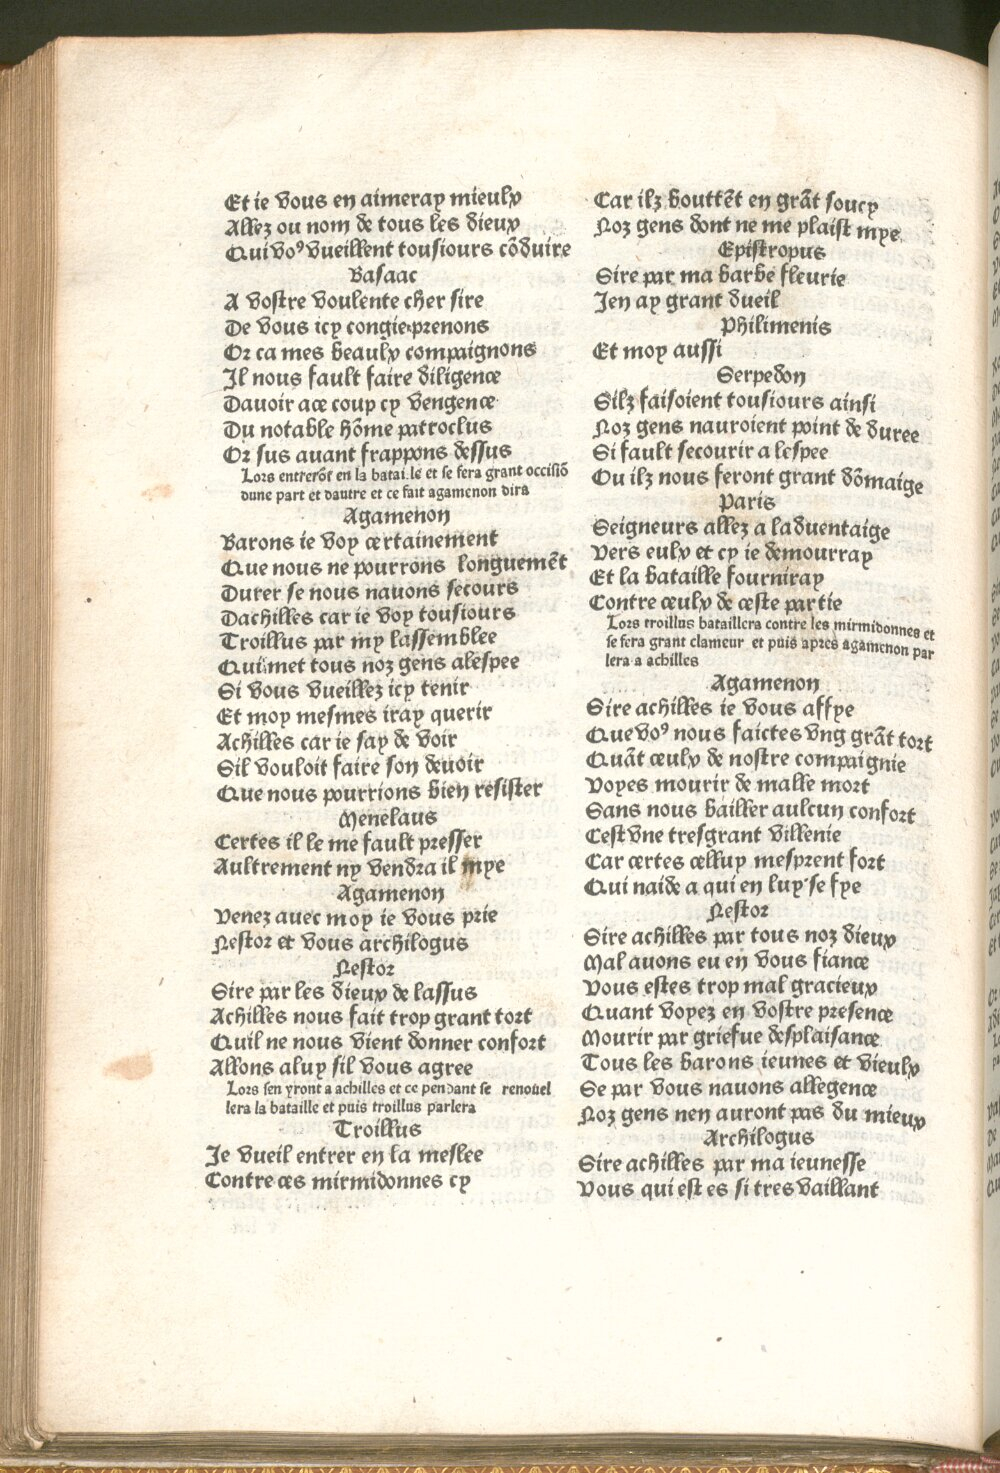 Et ie vous en aimeray mieulx
Allez ou nom de tous les dieux
Qui voꝰ vueillent tousiours cōduire
Basaac
A vostre voulente cher sire
De vous icy congie prenons
Or ca mes beaulx compaignons
Il nous fault faire diligence
Davoir ace coup cy vengence
Du notable hōme patroclus
Or sus auant frappons dessus
Lors entrerōt en la bataille et se fera grant occisiō
dune part et dautre et ce fait agamenon dira
Agamenon
Barons ie voy certainement
Que nous ne pourrons longuemēt
Durer se nous nauons secours
Dachilles car ie voy tousiours
Troillus par my lassemblee
Qui met tous noz gens alespee
Si vous vueillez icy tenir
Et moy mesmes iray querir
Achilles car ie say de voir
Sil vouloit faire son devoir
Que nous pourrions bien resister
Menelaus
Certes il le me fault presser
Aultrement ny vendra il mye
Agamenon
Venez auec moy ie vous prie
Nestor et vous archilogus
Nestor
Sire par les dieux de lassus
Achilles nous fait trop grant tort
Quil ne nous vient donner confort
Allons aluy sil vous agree
Lors sen yront a achilles et ce pendant se renouel
lera la bataille et puis troillus parlera
Troillus
Je vueil entrer en la meslee
Contre ces mirmidonnes cy
Car ilz bouttēt en grāt soucy
Noz gens dont ne me plaist mye
Epistropus
Sire par ma barbe fleurie
Jen ay grant dueil
Philimenis
Et moy aussi
Serpedon
Silz faisoient tousiours ainsi
Noz gens nauroient point de duree
Si fault secourir a lespee
Ou ilz nous feront grant dōmaige
Paris
Seigneurs allez a laduentaige
Vers eulx et cy ie demourray
Et la bataille fourniray
Contre ceulx de ceste partie
Lors troillus bataillera contre les mirmidonnes et
se fera grant clameur et puis apres agamenon par
lera a achilles
Agamenon
Sire achilles ie vous affye
Que voꝰ nous faictes vng grāt tort
Quāt ceulx de nostre compaignie
Voyes mourir de malle mort
Sans nous bailler aulcun confort
Cest vne tresgrant villenie
Car certes celluy mesprent fort
Qui naide a qui en luy se fye
Nestor
Sire achilles par tous noz dieux
Mal auons eu en vous fiance
Vous estes trop mal gracieux
Quant voyez en vostre presence
Mourir par griefue desplaisance
Tous les barons ieunes et vieulx
Se par vous nauons allegence
Noz gens nen auront pas du mieux
Archilogus
Sire achilles par ma ieunesse
Vous qui est es si tres vaillant